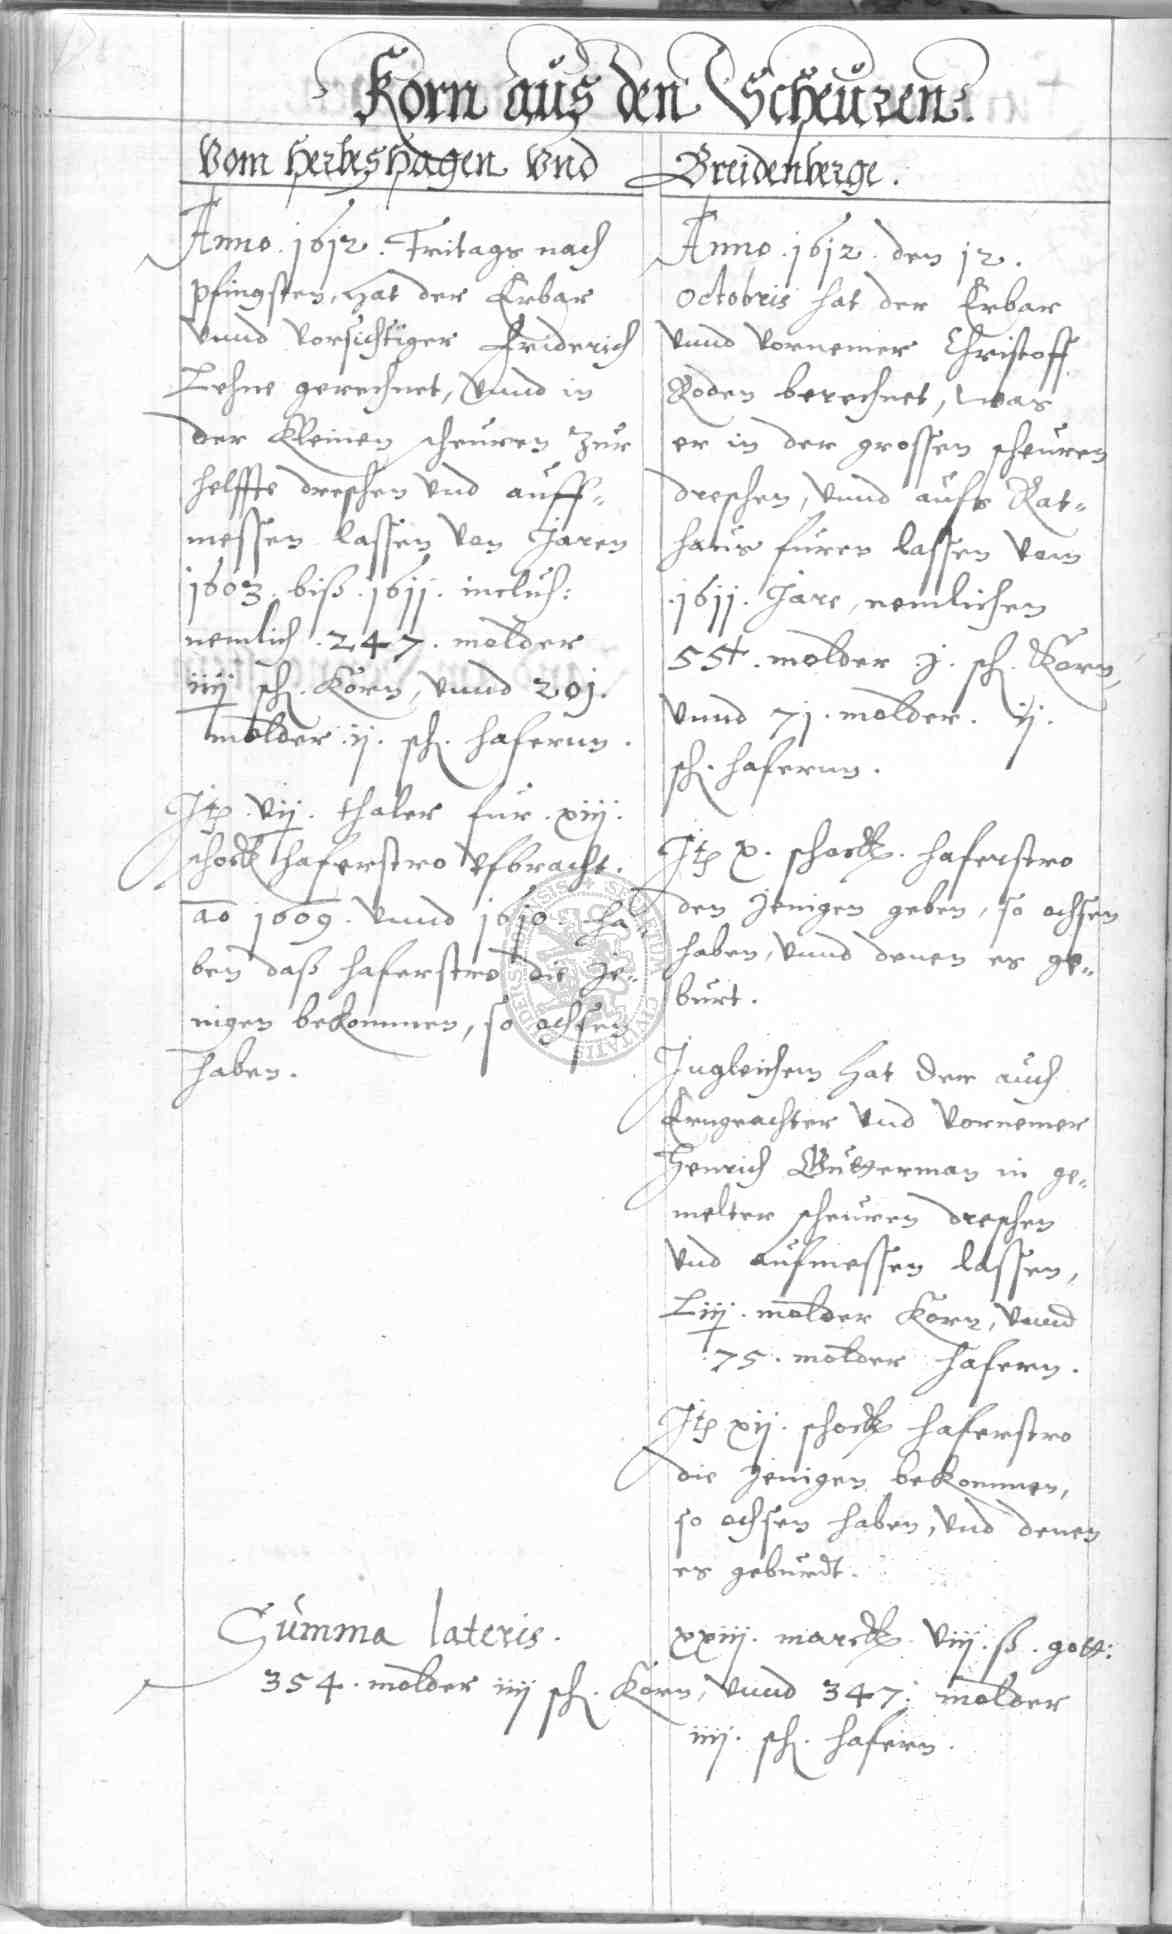 Korn aus den Scheuren.
Vom Herbeshagen Vnd
Anno .1612. Fritags nach
pfingsten, hat der Erbar
vnnd Vorsichtiger Friderich
Lehne gerechnet, vnnd in
der kleinen scheuren zur
helffte dreschen vnd auff-
messen lassen von Jaren
1603. biß .1611. inclus:
nemlich .247. molder
iiij sch. Korn, vnnd 201.
molder .ij. sch. haferen.
Jtem .vij. thaler für .xiij.
schock haferstro vfbracht.
ao 1609. vnnd 1610. ha-
ben daß haferstro die je-
nigen bekommen, so ochsen
haben.
Breidenberge.
Anno .1612. den 12.
Octobris hat der Erbar
vnnd vornemer Christoff
Roden berechnet, was
er in der grossen scheuren
dreschen, vnnd aufs Rat-
haus füren lassen vom
.1611. Jare, nemlichen
54. molder .j. sch. Korn,
vnnd 71. molder. ij.
sch. haferen.
Jtem x. schock. haferstro
den jenigen geben, so ochsen
haben, vnnd denen es ge-
burt.
Jngleichem hat der auch
Erngeachter vnd vornemer
Henrich Witterman in ge-
melter scheuren dreschen
vnd aufmessen lassen,
Liij. molder Korn, vnnd
75. molder hafern.
Jtem xij. schock haferstro
die jenigen bekommen,
so ochsen haben, vnd denen
es geburdt.
Summa lateris.
xxiij. marck. viij. ß. gott:
354. molder iiij sch. Korn, vnnd 347. molder
iiij. sch. hafern.